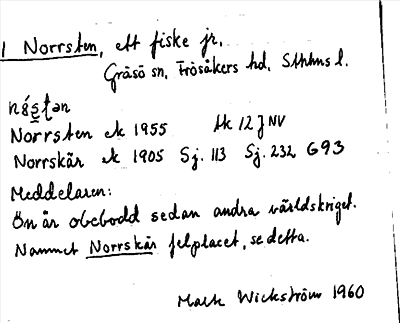 1 Norrsten, ett fiske jr.
Gräsö sn, Frösåkers hd. Sthlms l.
Norrsten ek 1955 tk 12 J NV
Norrskär ek 1905 Sj. 113 Sj. 232 G93
Meddelaren:
Ön är obebodd sedan andra världskriget.
Namnet Norrskär felplacet, se detta.
Wickström 1960